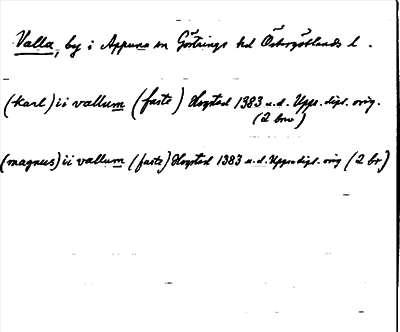 Valla, by i Appuna sn Göstrings hd Östergötlands l.
(karl) ii vallum (faste) Hogstad 1383 u.d. Upps. dipl. orig.
(2 brev)
(magnus) ii vallum (faste) Hogstad 1383 u.d. Upps. dipl. orig (2 br)